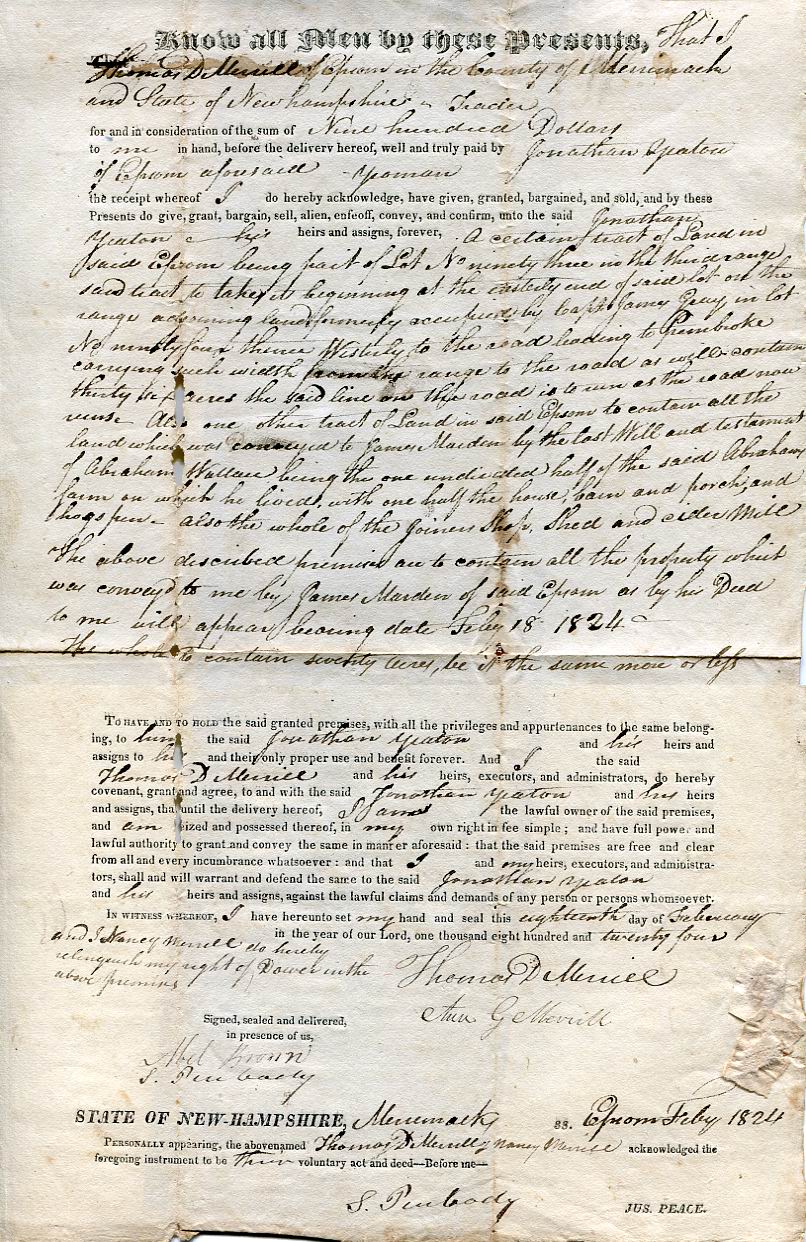 Know all Men by these Presents, That I
Thomas D Merrill of Epsom in the County of Merrimack
and State of Newhampshire - Trader
for and in consideration of the sum of Nine hundred Dollars
to me in hand, before the delivery hereof, well and truly paid by Jonathan Yeaton
of Epsom aforesaid - yeoman
the receipt whereof I do hereby acknowledge, have given, granted, bargained, and sold, and by these
Presents do give, grant, bargain, sell, alien, enfeoff, convey, and confirm, unto the said Jonathan
Yeaton & his heirs and assigns, forever, A certain tract of Land in
said Epsom being part of Lot No ninety three in the third range
said tract to take its beginning at the easterly end of said lot on the
range adjoining land formerly occupied by Capt James Gray in lot
No ninety four thence Westerly to the road leading to Pembroke
carrying such width from the range to the road as will contain
thirty six acres the said line on the road is to run as the road now
runs - Also one other tract of Land in said Epsom to contain all the
land which was conveyed to James Marden by the last Will and testament
of Abraham Wallace being the one undivided half of the said Abraham
farm on which he lived, with one half the house, barn and porch, and
hogs pen - also the whole of the Joiners Shop, Shed and cider Mill
The above discribed premises are to contain all the property which
was conveyd to me by James Marden of said Epsom as by his Deed
to me will appear bearing date Feby 18 1824
The whole to contain seventy acres, be it the same more or less
To have and to hold the said granted premises, with all the privileges and appurtenances to the same belong-
ing, to him the said Jonathan Yeaton and his heirs and
assigns to his and their only proper use and benefit forever. And I the said
Thomas D Merrill and his heirs, executors, and administrators, do hereby
covenant, grant and agree, to and with the said Jonathan Yeaton and his heirs
and assigns, that until the delivery hereof, I am the lawful owner of the said premises,
and am seized and possessed thereof, in my own right in fee simple ; and have full power and
lawful authority to grant and convey the same in manner aforesaid : that the said premises are free and clear
from all and every incumbrance whatsoever : and that I and my heirs, executors, and administra-
tors, shall and will warrant and defend the same to the said Jonathan Yeaton
and his heirs and assigns, against the lawful claims and demands of any person or persons whomsoever.
In witness whereof, I have hereunto set my hand and seal this eighteenth day of Feberuary
in the year of our Lord, one thousand eight hundred and twenty four
and I Nancy Merrill do hereby
relinquish my right of Dower in the
above premises
Thomas D Merrill
Ann G Merrill
Signed, sealed and delivered,
in presence of us,
Abel Brown
S. Penbody
STATE OF NEW-HAMPSHIRE, Merrimack ss. Epsom Feby 1824
Personally appearing, the abovenamed Thomas D Merrill & Nancy Merrill acknowledged the
foregoing instrument to be their voluntary act and deed—Before me—
S. Penbody JUS. PEACE.